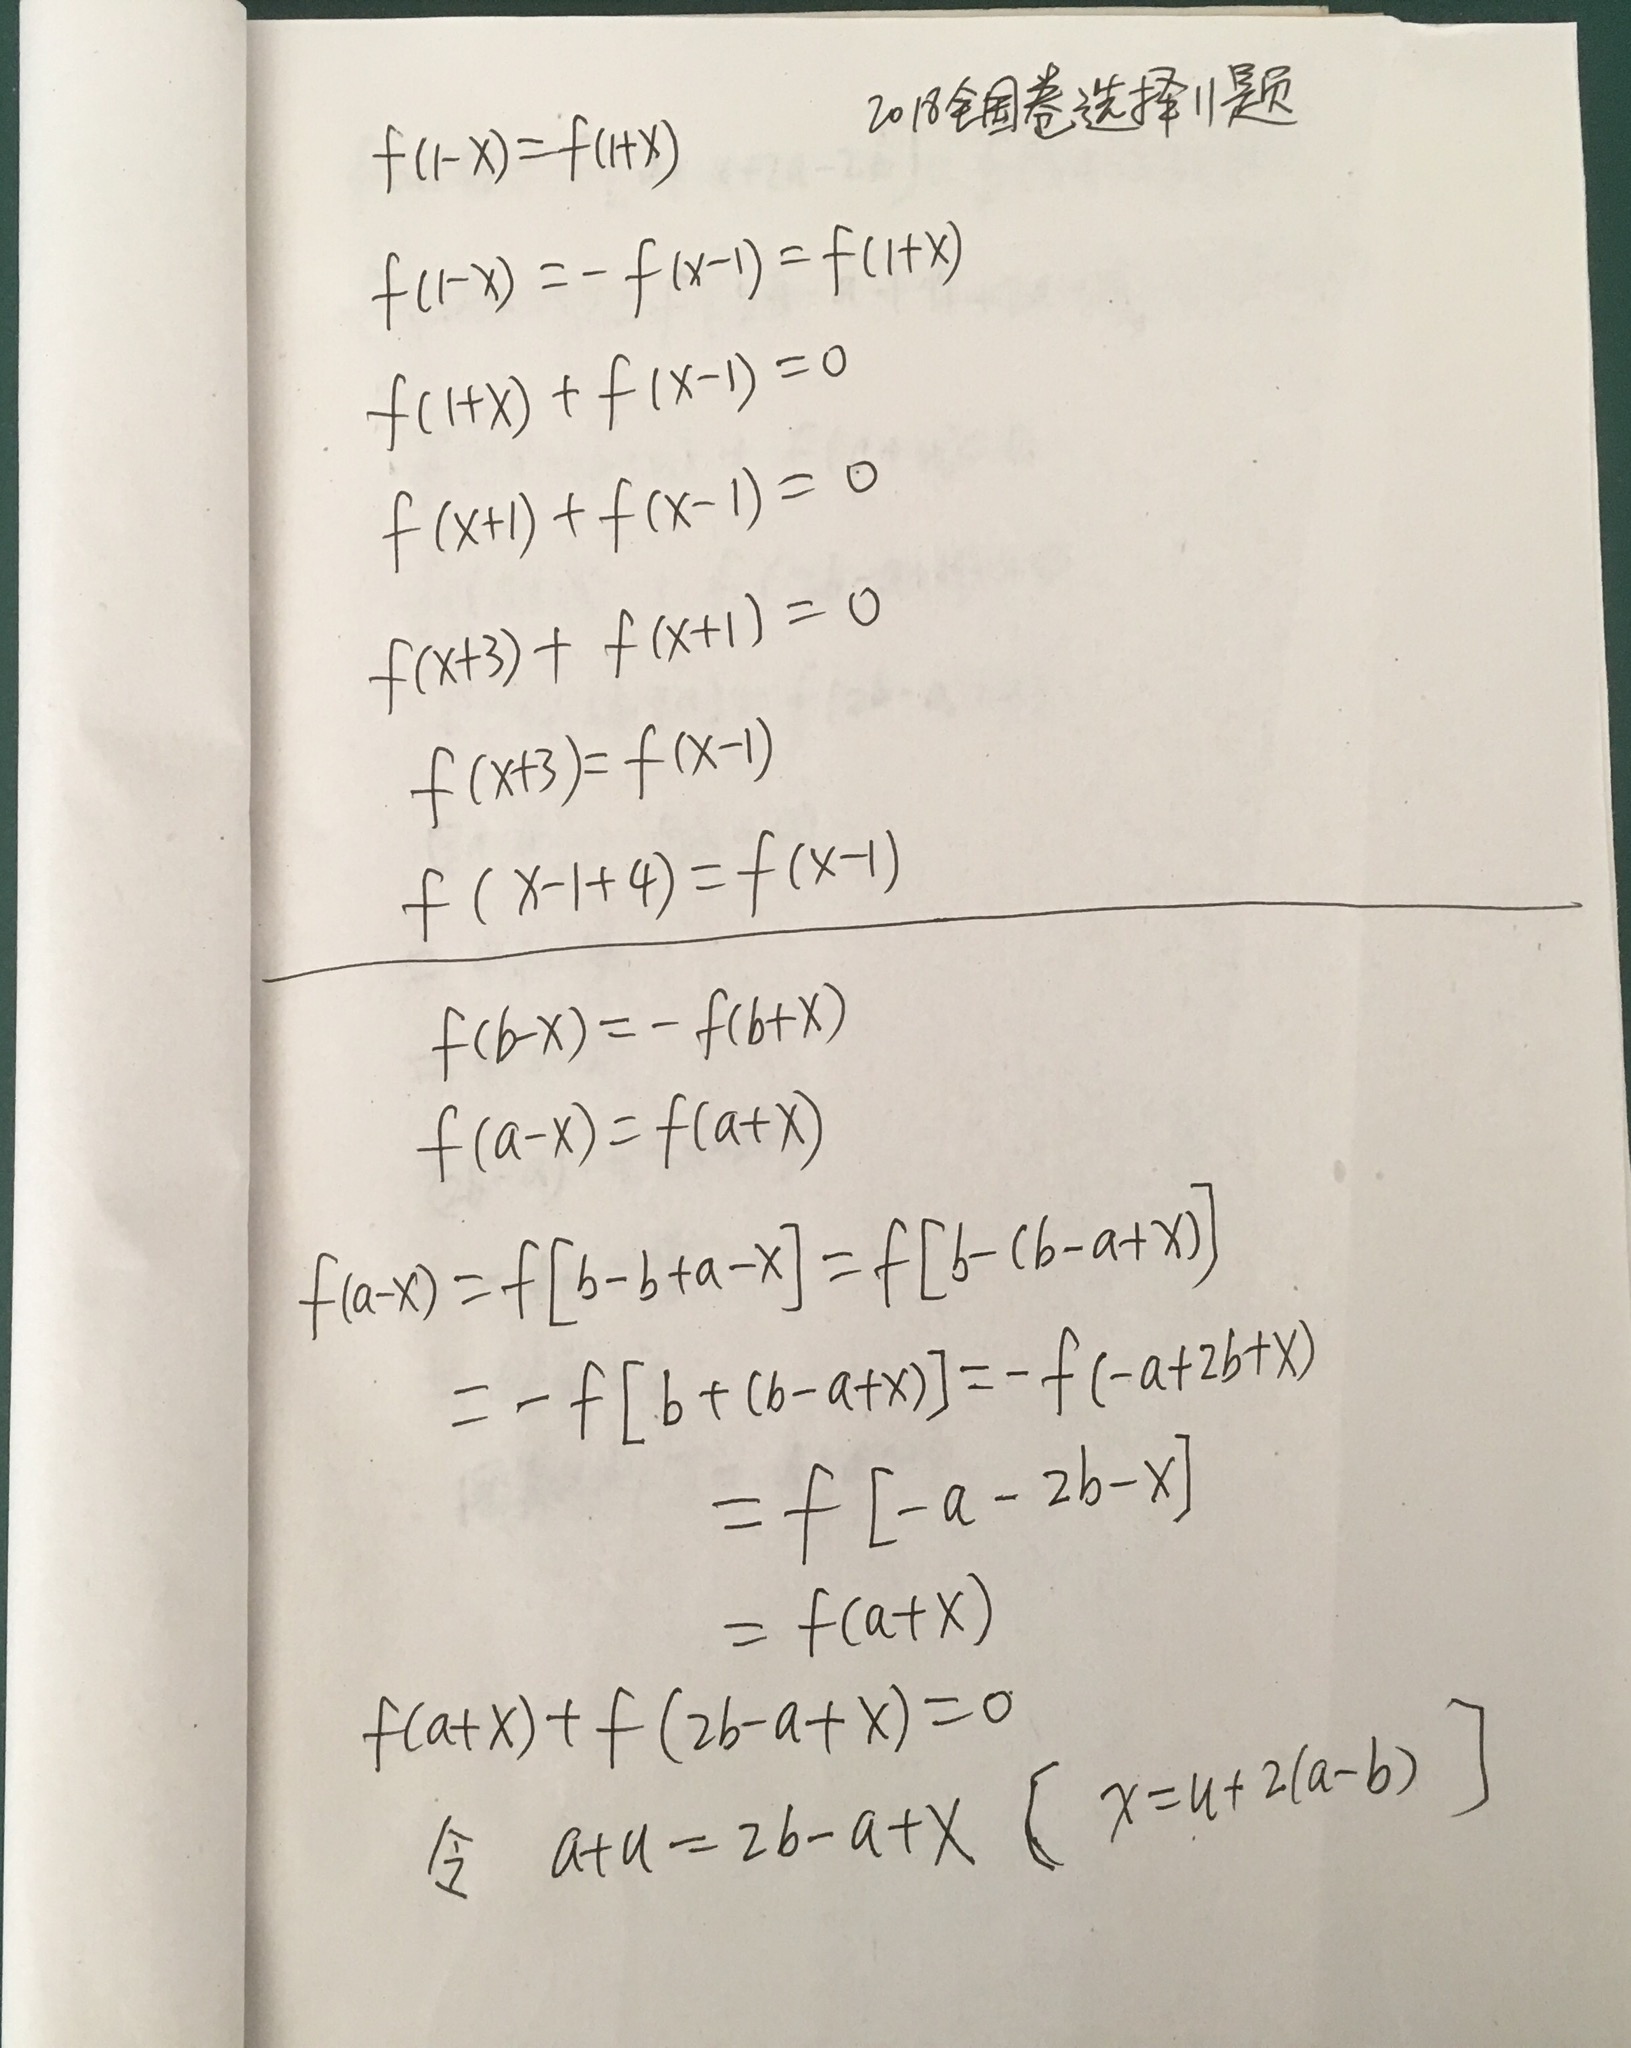 2018全国卷选择11题
f(1-x)=f(1+x)
f(1-x)=-f(x-1)=f(1+x)
f(1+x)+f(x-1)=0
f(x+1)+f(x-1)=0
f(x+3)+f(x+1)=0
f(x+3)=f(x-1)
f(x-1+4)=f(x-1)
f(b-x)=-f(b+x)
f(a-x)=f(a+x)
f(a-x)=f[b-b+a-x]=f[b-(b-a+x)]
=-f[b+(b-a+x)]=-f(-a+2b+x)
=f[-a-2b-x]
=f(a+x)
f(a+x)+f(2b-a+x)=0
令 a+u=2b-a+x [x=u+2(a-b)]